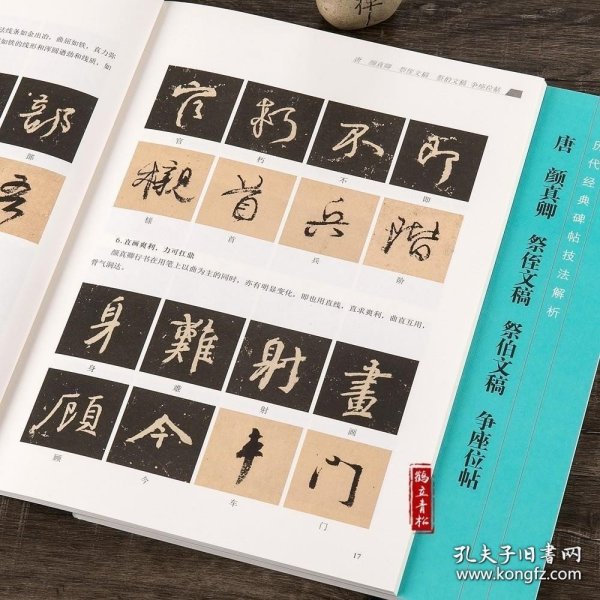 法线条如金出冶,曲屈如铁,直力弥
如铁的线形和浑圆遒劲和线质,如
部
部
唐 颜真卿 祭侄文稿 祭伯文稿 争座位帖
官 朽 不 即
官 朽 不 即
榇 首 兵 阶
首 兵 阶
6.直画爽利,力可扛鼎
颜真卿行书在用笔上以曲为主的同时,亦有明显变化,即也用直线,直求爽利,曲直互用,
骨气洞达。
身 難 射 畫
身 难 射 画
顧 今 車 门
顾 今 车 门
17
历代经典碑帖技法解析
唐 颜真卿 祭侄文稿 祭伯文稿 争座位帖
鹤立青松
孔夫子旧书网
www.kongfz.com